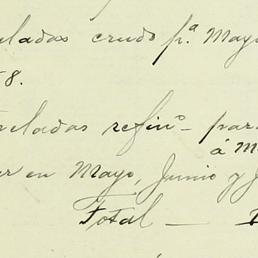 eladas crudo p.ª Mayo
8.
eladas refin.º - para
á M
er en Mayo, Junio y J
Total —